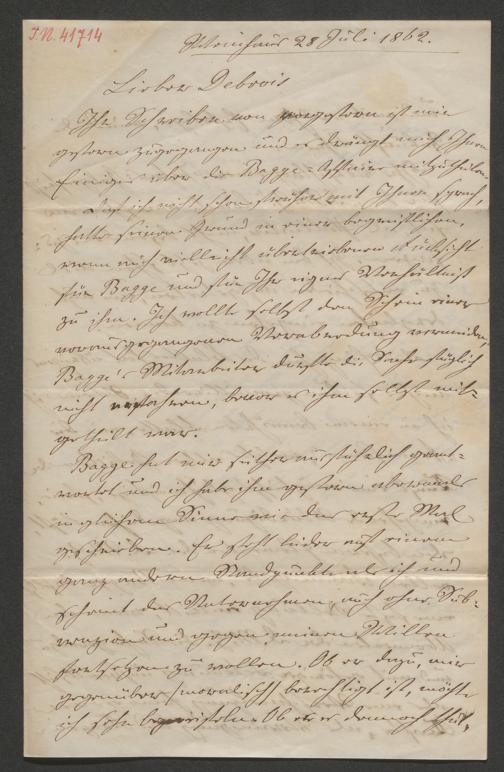 I.N. 41714
28 Juli 1862.
Lieber Debrois
Ihr Schreiben von vorgestern ist mir
gestern zugegangen und es drängt mich Ihnen
Einiges über die Bagge-Affaire mitzutheilen.
Daß ich nicht schon früher mit Ihnen sprach,
hatte seinen Grund in einer begreiflichen,
wenn auch vielleicht übertriebenen Rücksicht
für Bagge und für Ihr eigenes Verhältniß
zu ihm. Ich wollte selbst den Schein einer
vorausgegangenen Verabredung vermeiden,
Bagge's Mitarbeiter durfte die Sache füglich
nicht erfahren, bevor es ihm selbst mit-
getheilt war.
Bagge hat mir seither ausführlich geant-
wortet und ich habe ihm gestern abermals
in gleichem Sinne wie das erste Mal
geschrieben. Er steht leider auf einem
ganz andern Standpunkte als ich und
scheint das Unternehmen, auch ohne Sub-
vention und gegen meinen Willen
fortsetzen zu wollen. Ob er dazu, mir
gegenüber, moralisch berechtigt ist, möchte
ich sehr bezweifeln. Ob er es dennoch thut,